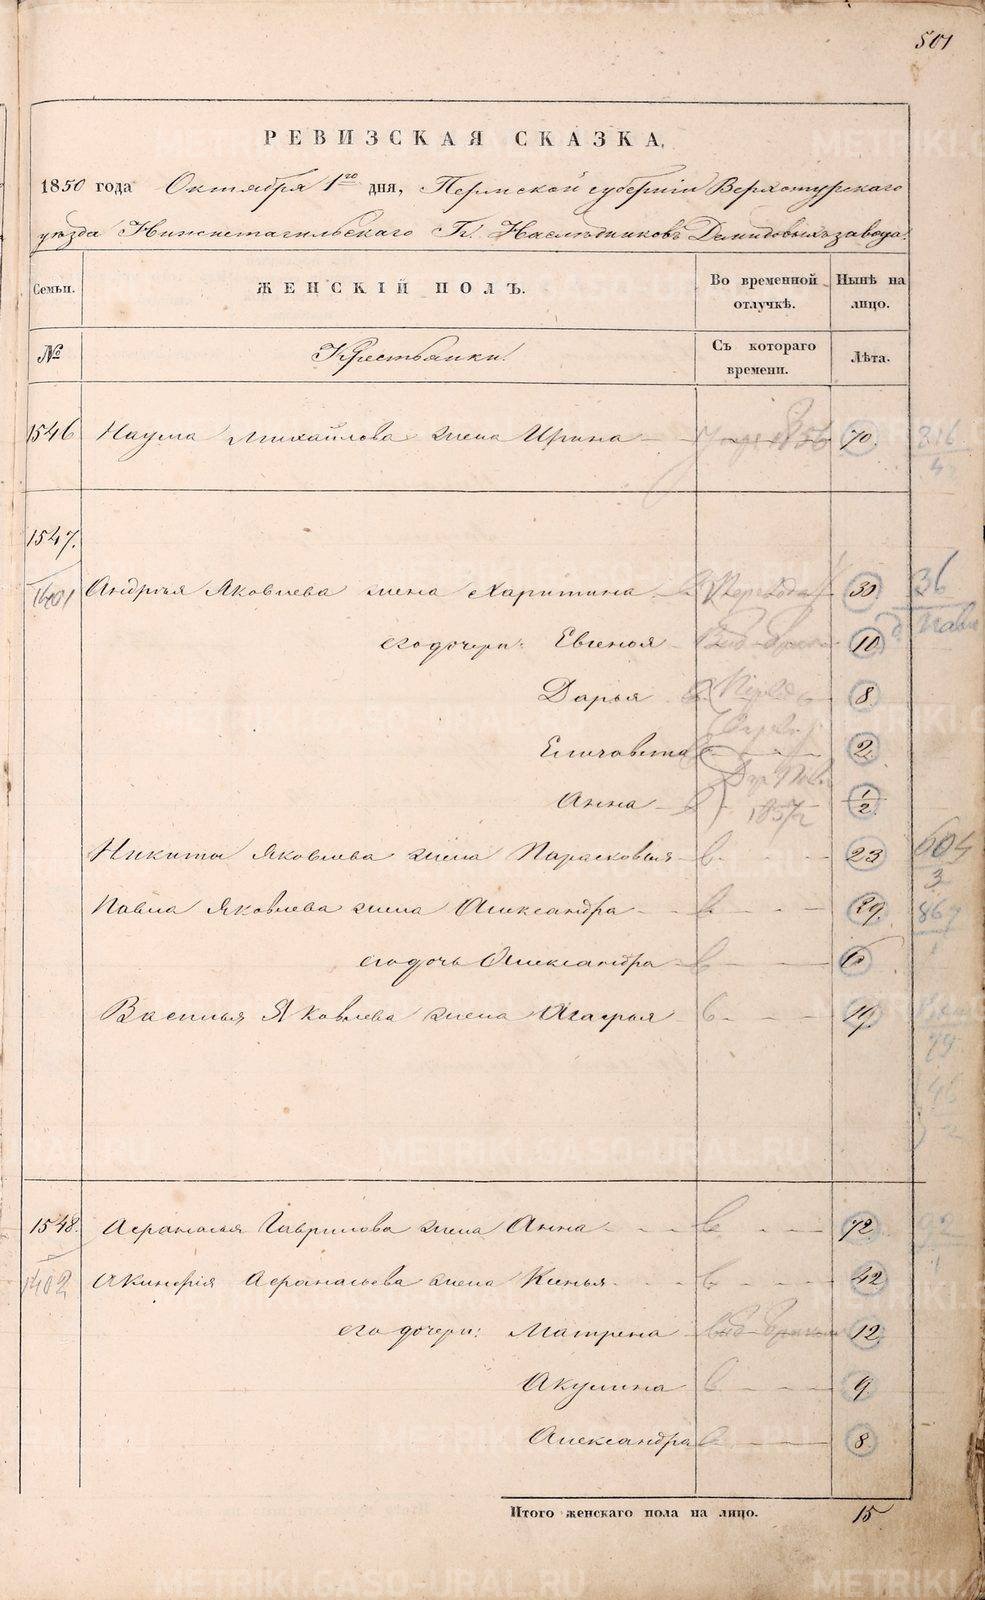 501
РЕВИЗСКАЯ СКАЗКА.
1850 года Октября 1го дня, Пермской губерніи Верхотурскаго
уѣзда Нижнетагильскаго Гг. Наслѣдниковъ Демидовыхъ завода.
Семьи. ЖЕНСКІЙ ПОЛЪ. Во временной отлучкѣ. Нынѣ на лицо.
№ Крестьянки. Съ котораго времени. Лѣта.
1546 Наума Михайлова жена Ирина 1856 70. 316
4
1547.
1401 Андрѣя Яковлева жена Харитина 30 36
его дочери: Евгенья 10
Дарья 8
Елизавета 2
Анна 1857 1/2
Никиты Яковлева жена Парасковья в 23 604
3
Павла Яковлева жена Александра в 29. 867
1
его дочь Александра в 6
Василья Яковлева жена Агафья в 19.
1548. Афанасья Гаврилова жена Анна в 72. 92
1
1402 Акинфія Афанасьева жена Ксенья в 42
его дочери: Матрена 12.
Акулина в 9
Александра в 8.
Итого женскаго пола на лицо. 15
METRIKI.GASO-URAL.RU